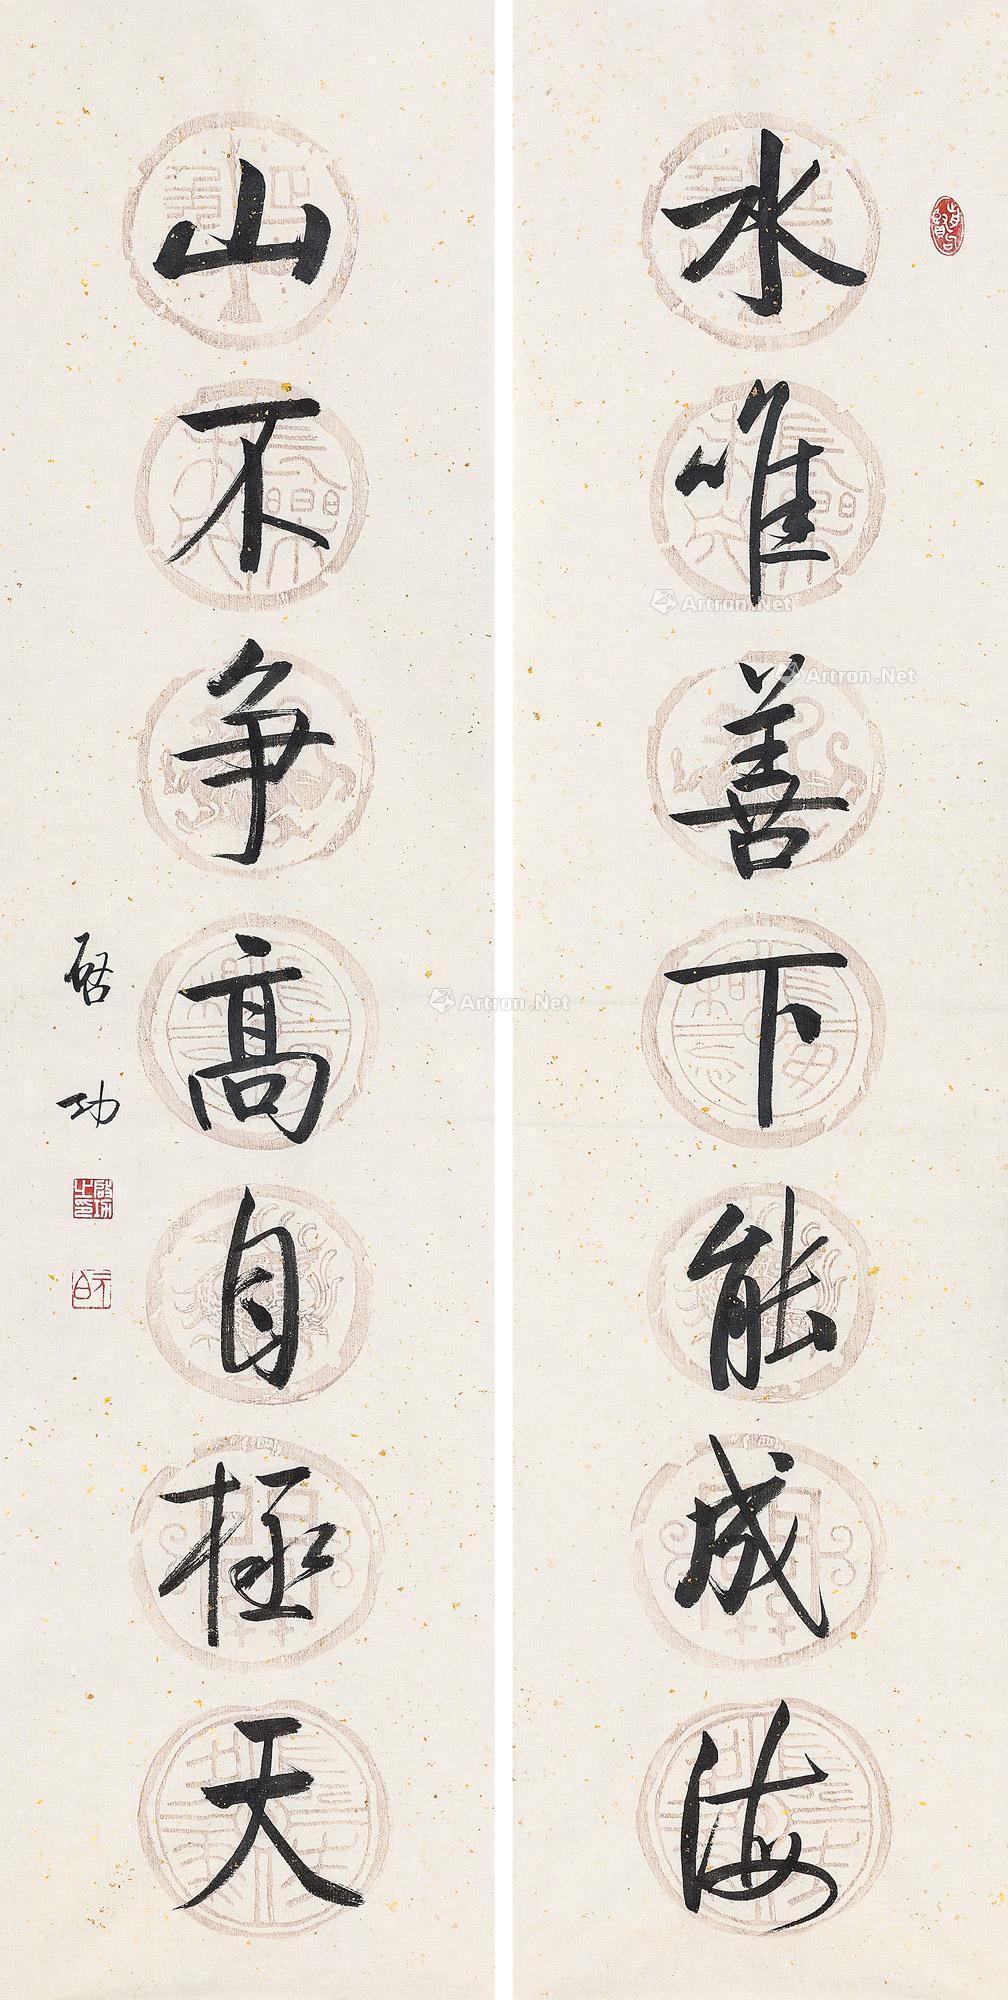 水唯善下能成海
山不争高自极天
启功
启功之印
元白
Artron.Net
Artron.Net
Artron.Net